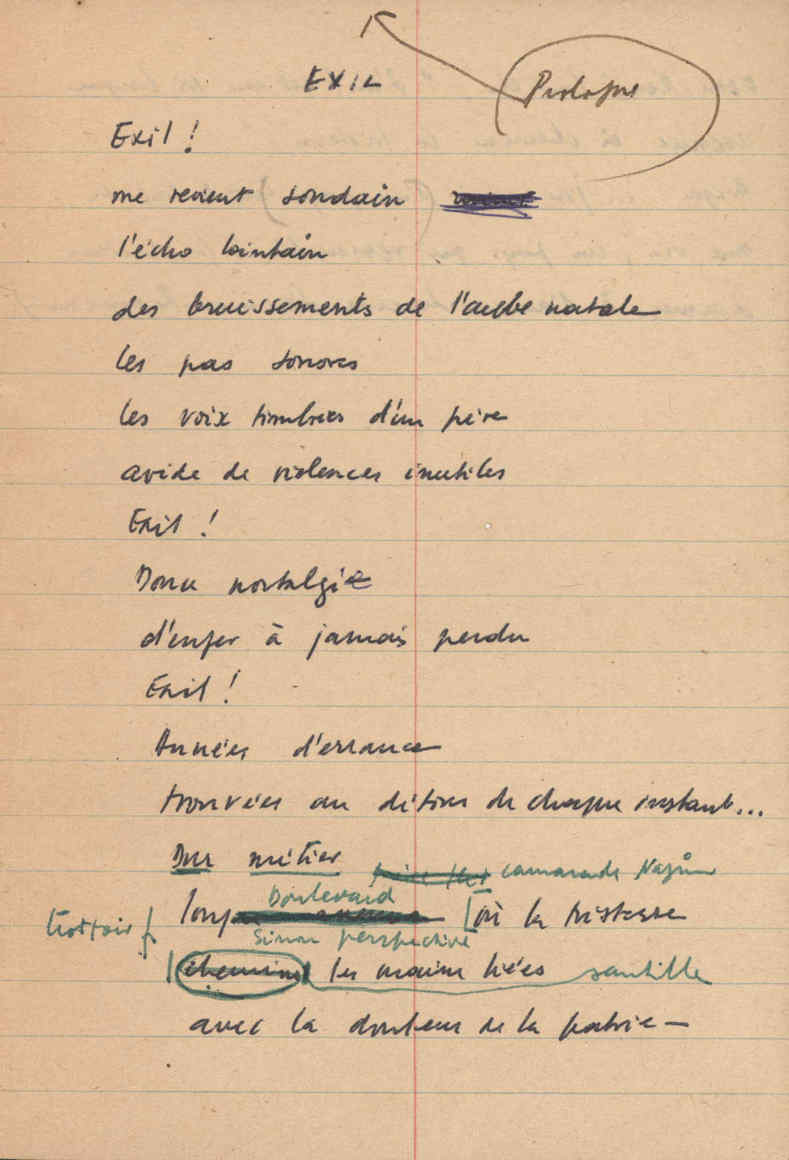 EXIL
Prologue
Exil !
me revient soudain
l'écho lointain
des bruissements de l'aube natale
les pas sonores
les voix timbrées d'un père
avide de violences inutiles
Exil !
Douce nostalgie
d'enfer à jamais perdu
Exil !
Années d'errance
trouvées au détour de chaque instant...
Dur métier
camarade Nazim
Boulevard
trottoir long où la tristesse
Sinon perspective
chemine les mains liées sautille
avec la douleur de la patrie —